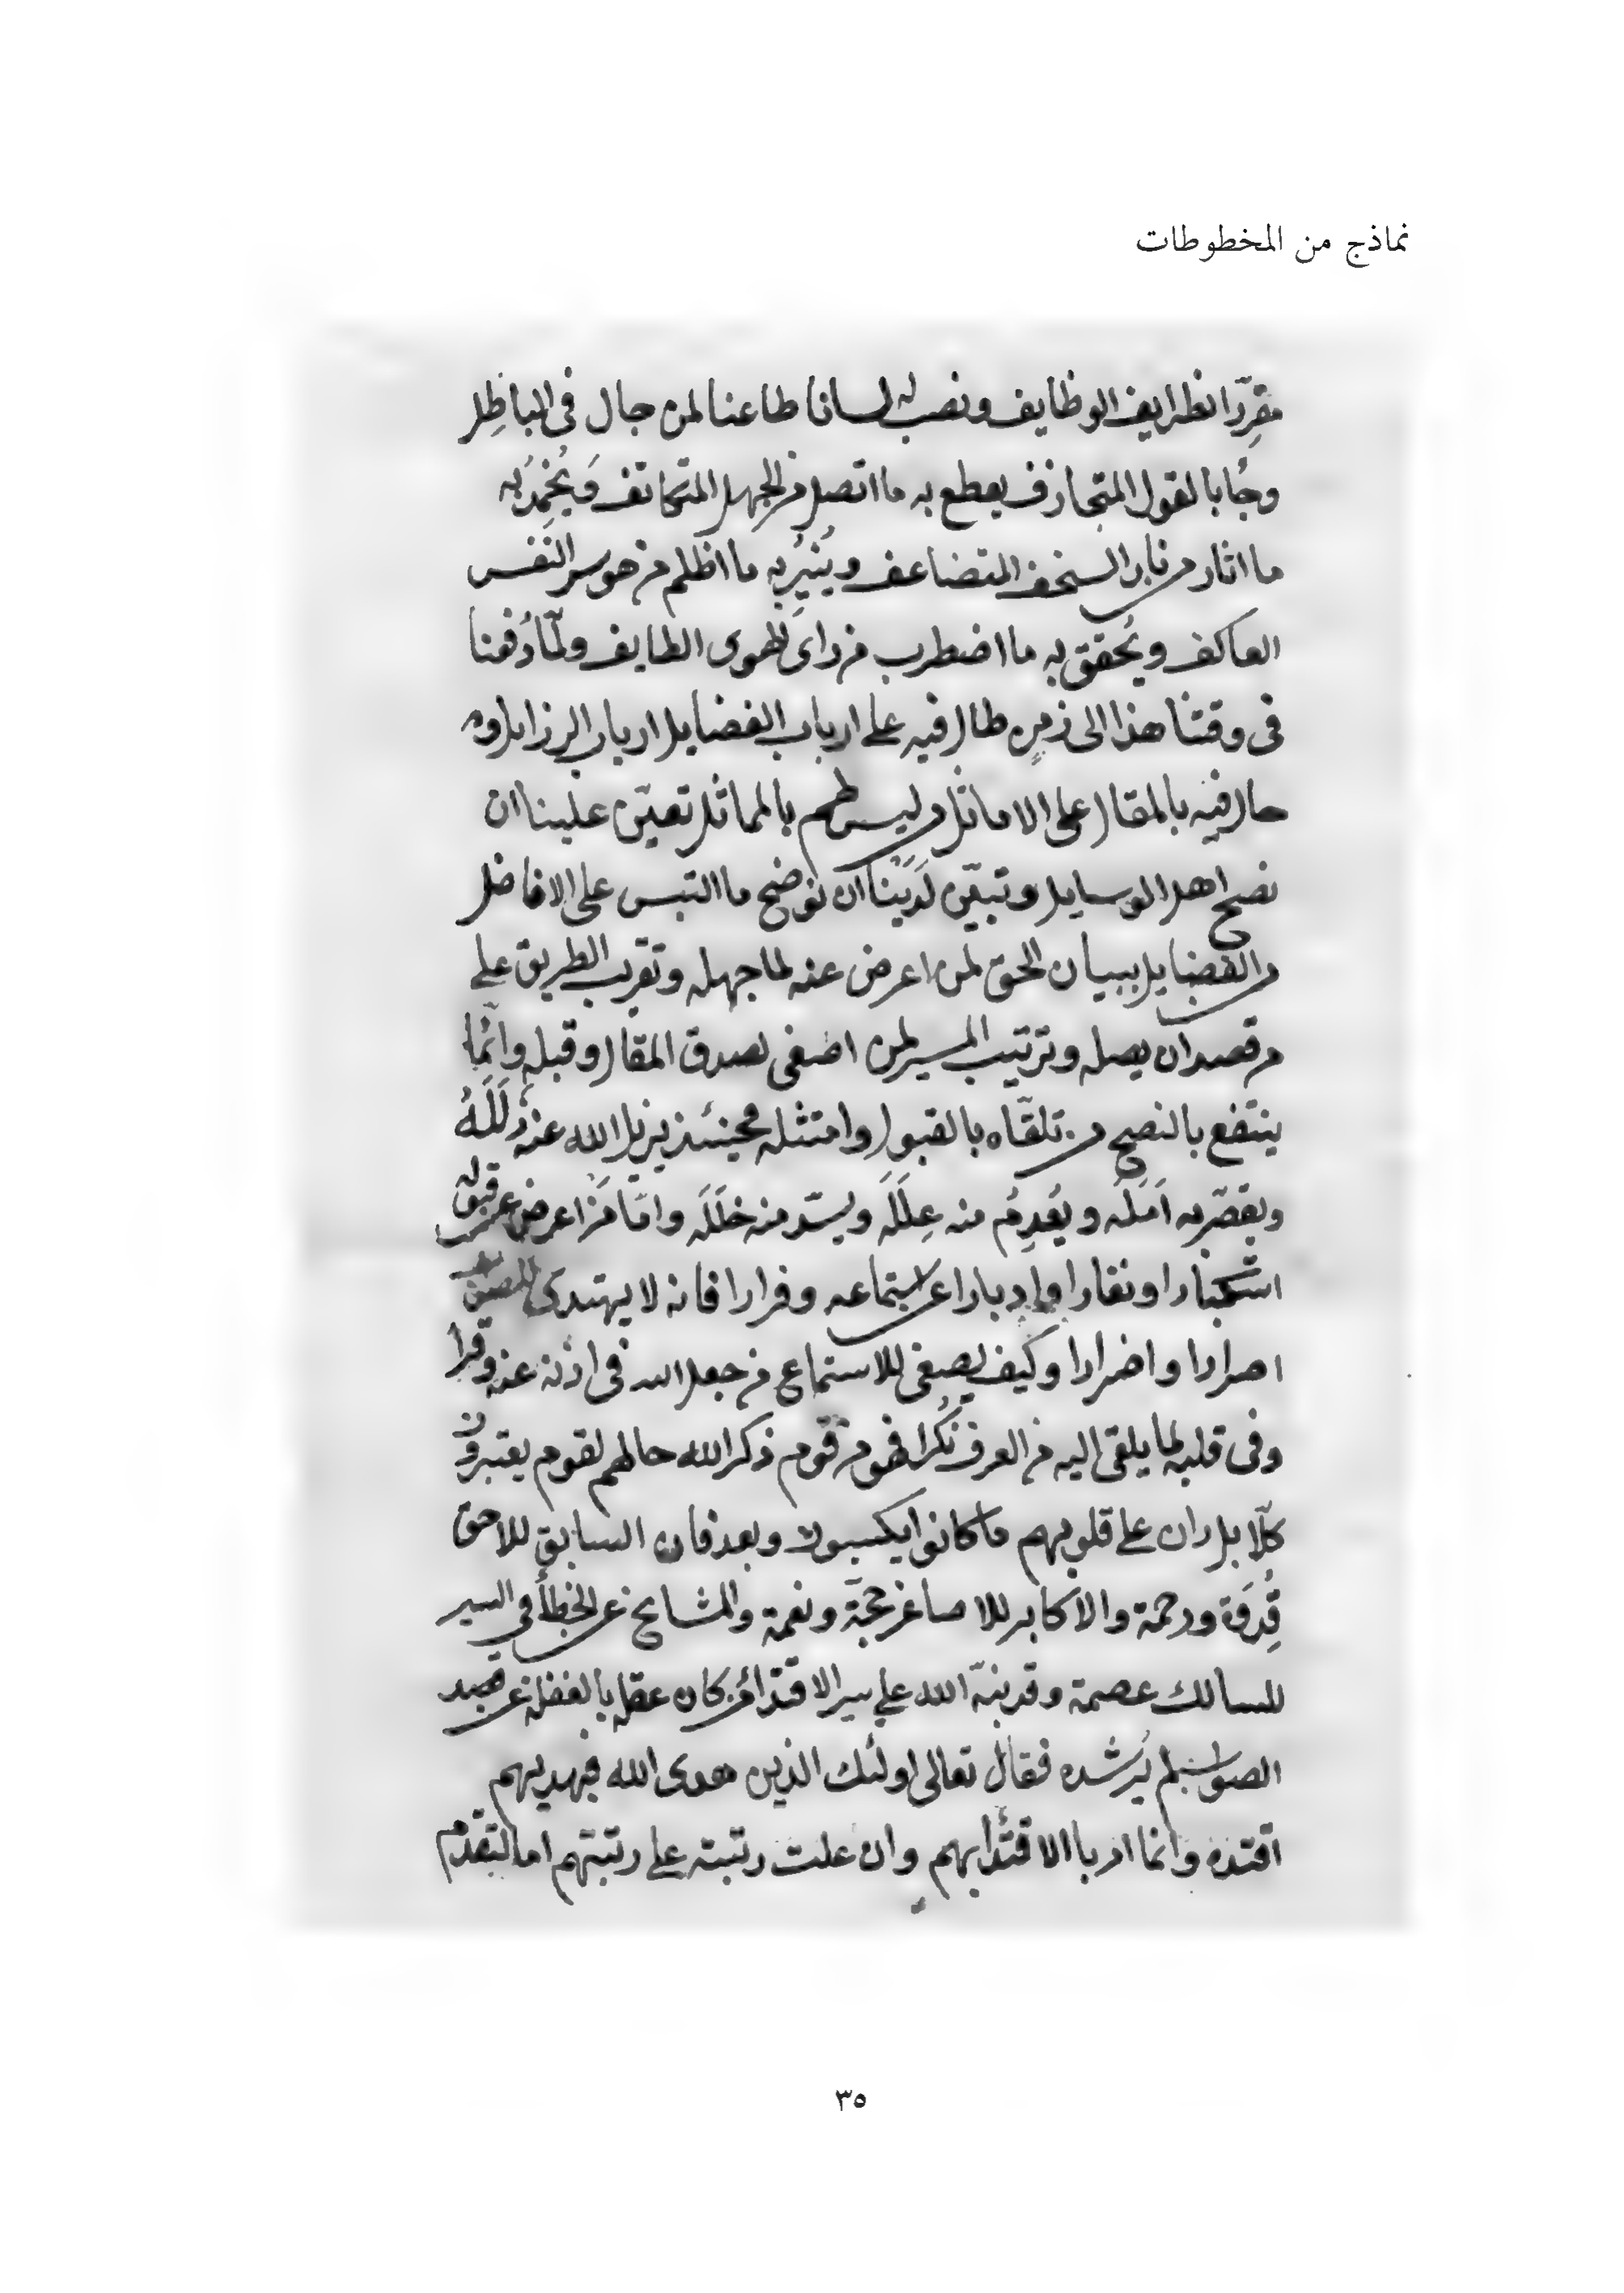 نماذج من المخطوطات
مقرّرا لظرايف الوظايف ونصب له لسانا طاعنا لمن جال فى الباطِل
وجُا بالقول المتجازف يقطع به ما اتصل من الجهل المتكاثف وَيُخمِدُ به
ما اثار من نار السخف المتضاعف ويُنيرُ به ما اظلم من هوس النفس
العاكف ويُحقق به ما اضطرب من راى الهوى الطايف ولمّا دُفعنا
فى وقتنا هذا الى زمنٍ طال فيه على ارباب الفضايل ارباب الرزايل و
جال فيه بالمقال على الاماثل من ليس لهم بالمماثل تعيّن علينا ان
نصح اهل الوسايل وتبيّن لَدَيْنا ان نوضح ما التبس على الافاضل
من الفضايل ببيان الحق لمن اعرض عنه لما جهله وتقريب الطريق على
من قصد ان يصله وترتيب المسير لمن اصغى لصدق المقال وقبله وانّما
ينتفع بالنصح من تلقّاه بالقبول وامتثله فحينئذ يزيل الله عنه زَلَلَهُ
ويقصّر به اَمَلَه ويُعدِمُ منه عِلَلَهُ ويسدّ منه خلَلَه وامّا مَن اعرض عن قبوله
استكبارا ونفارا وادبارا عن استماعه وفرارا فانه لا يهتدى
اصرارا واضرارا وكيف يصغى للاستماع من جعل الله فى اذنه عنه وقرا
وفى قلبه لما يلقى اليه من العرف نُكرا فهو من قوم ذكر الله حالهم لقوم يعتبرون
كلّا بل ران على قلوبهم ما كانوا يكسبون وبعد فان السابق للاحق
قُِدوَة ورحمة والاكابر للاصاغر حجّة ونعمة والمشايخ عن الخطأ فى السير
للسالك عصمة وقد نبّه الله على سير الاقتدا من كان عقله بالغفلة عن
الصواب لم يُرشده فقال تعالى اولئك الذين هدى الله فبهديهم
اقتده وانما امر باالاقتدا بهم وان علت رتبته على رتبتهم اما لتقدّم
٣٥